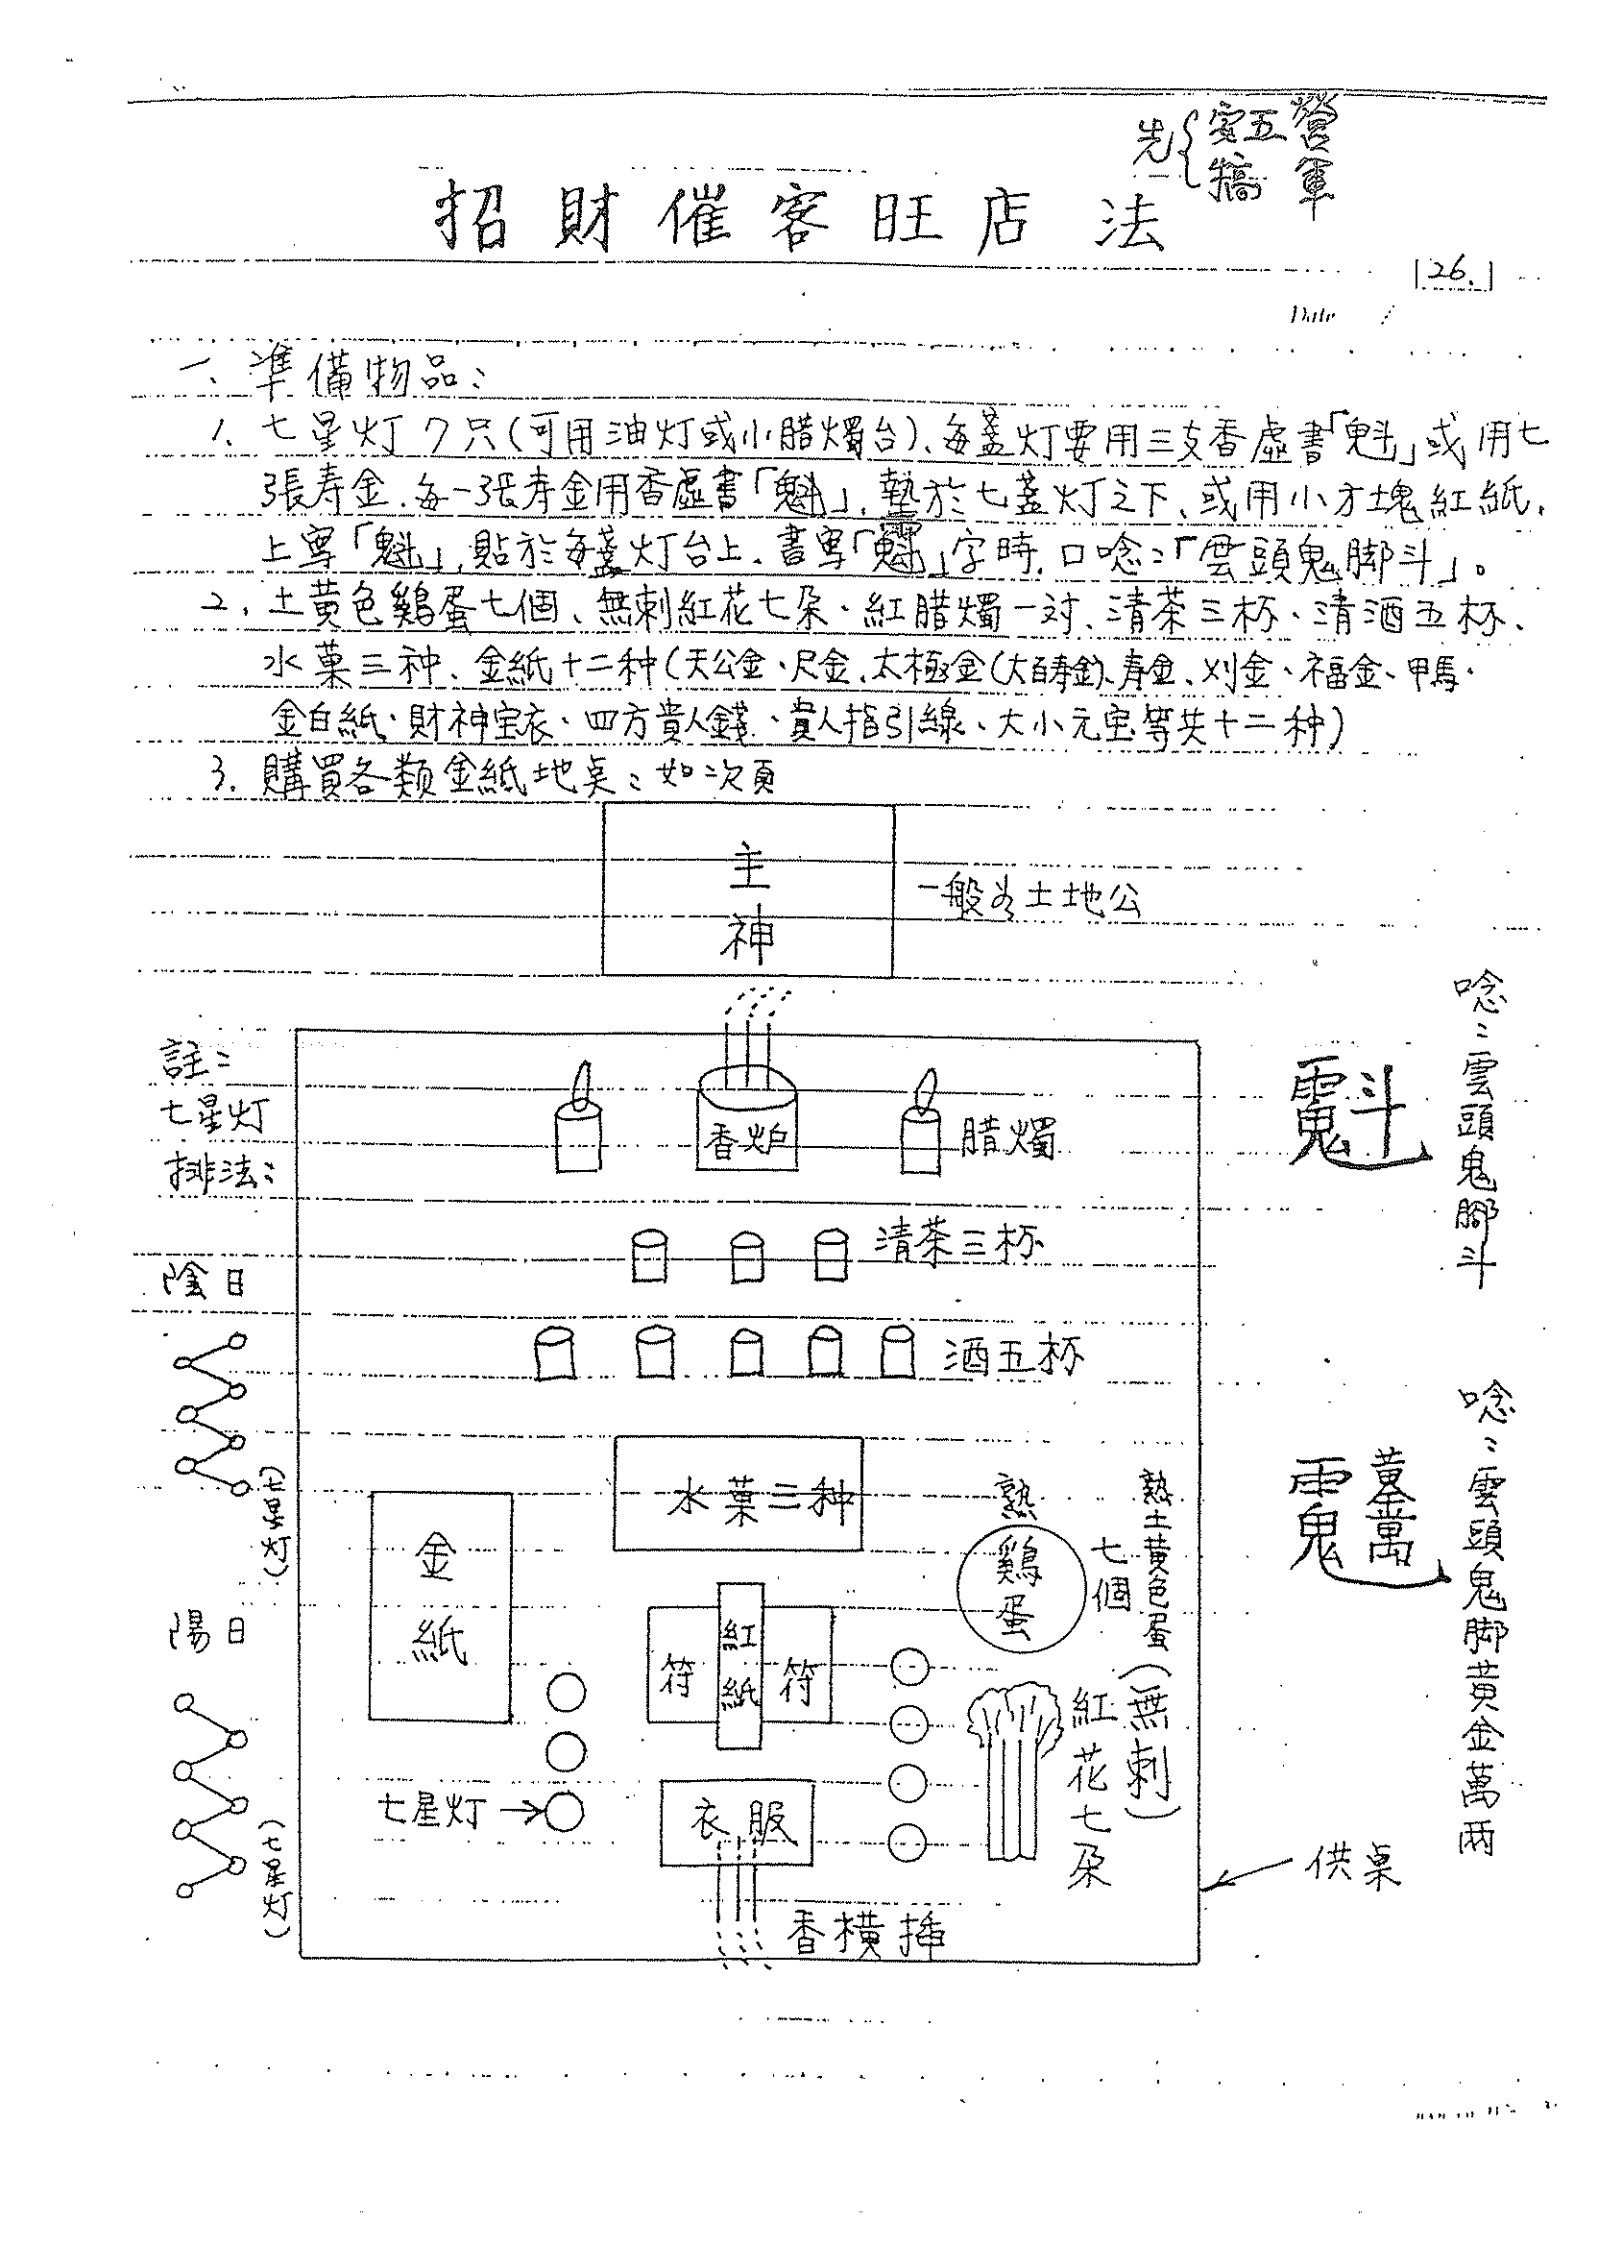 先{安五營
犒軍
招財催客旺店法
126.
Date /
一、準備物品:
1. 七星灯7只(可用油灯或小腊燭台)、每盞灯要用三支香虛書「魁」或用七
張寿金.每一張寿金用香虛書「魁」,墊於七盞灯之下、或用小方塊紅紙,
上寫「魁」,貼於每盞灯台上、書寫「䰢」字時,口唸:「雲頭鬼脚斗」。
2. 土黃色鷄蛋七個、無刺紅花七朶、紅腊燭一对、清茶三杯、清酒五杯、
水菓三种、金紙十二种(天公金、尺金、太極金(大百寿金)、寿金、刈金、福金、甲馬、
金白紙、財神宝衣、四方貴人錢、貴人指引線、大小元宝等共十二种)
3. 購買各类金紙地桌:如次頁
主
神
一般为土地公
註:
七星灯
排法:
香炉
腊燭
唸:雲頭鬼脚斗
清茶三杯
陰日
酒五杯
(七星灯)
水菓三种
金
紙
熟
鷄
蛋
七個
熟土黃色蛋
唸:雲頭鬼脚黃金萬両
陽日
符
紅
紙
符
紅花七朶
(無刺)
七星灯
衣服
(七星灯)
供桌
香橫揷